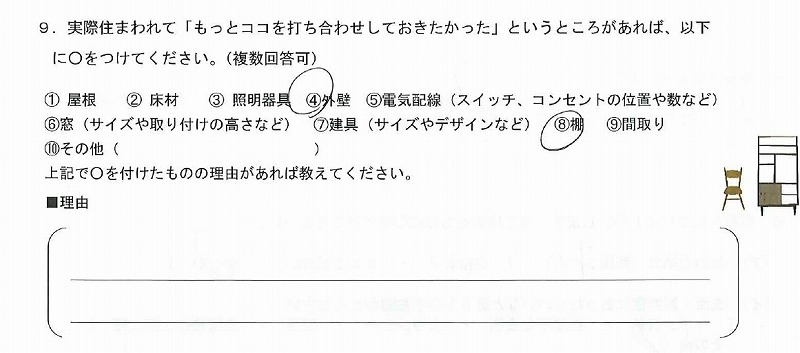 ９．実際住まわれて「もっとココを打ち合わせしておきたかった」というところがあれば、以下
に〇をつけてください。（複数回答可）
① 屋根　② 床材　③ 照明器具　④外壁　⑤電気配線（スイッチ、コンセントの位置や数など）
⑥窓（サイズや取り付けの高さなど）　⑦建具（サイズやデザインなど）　⑧棚　⑨間取り
⑩その他（　　　　　　　　　　　　）
上記で〇を付けたものの理由があれば教えてください。
■理由